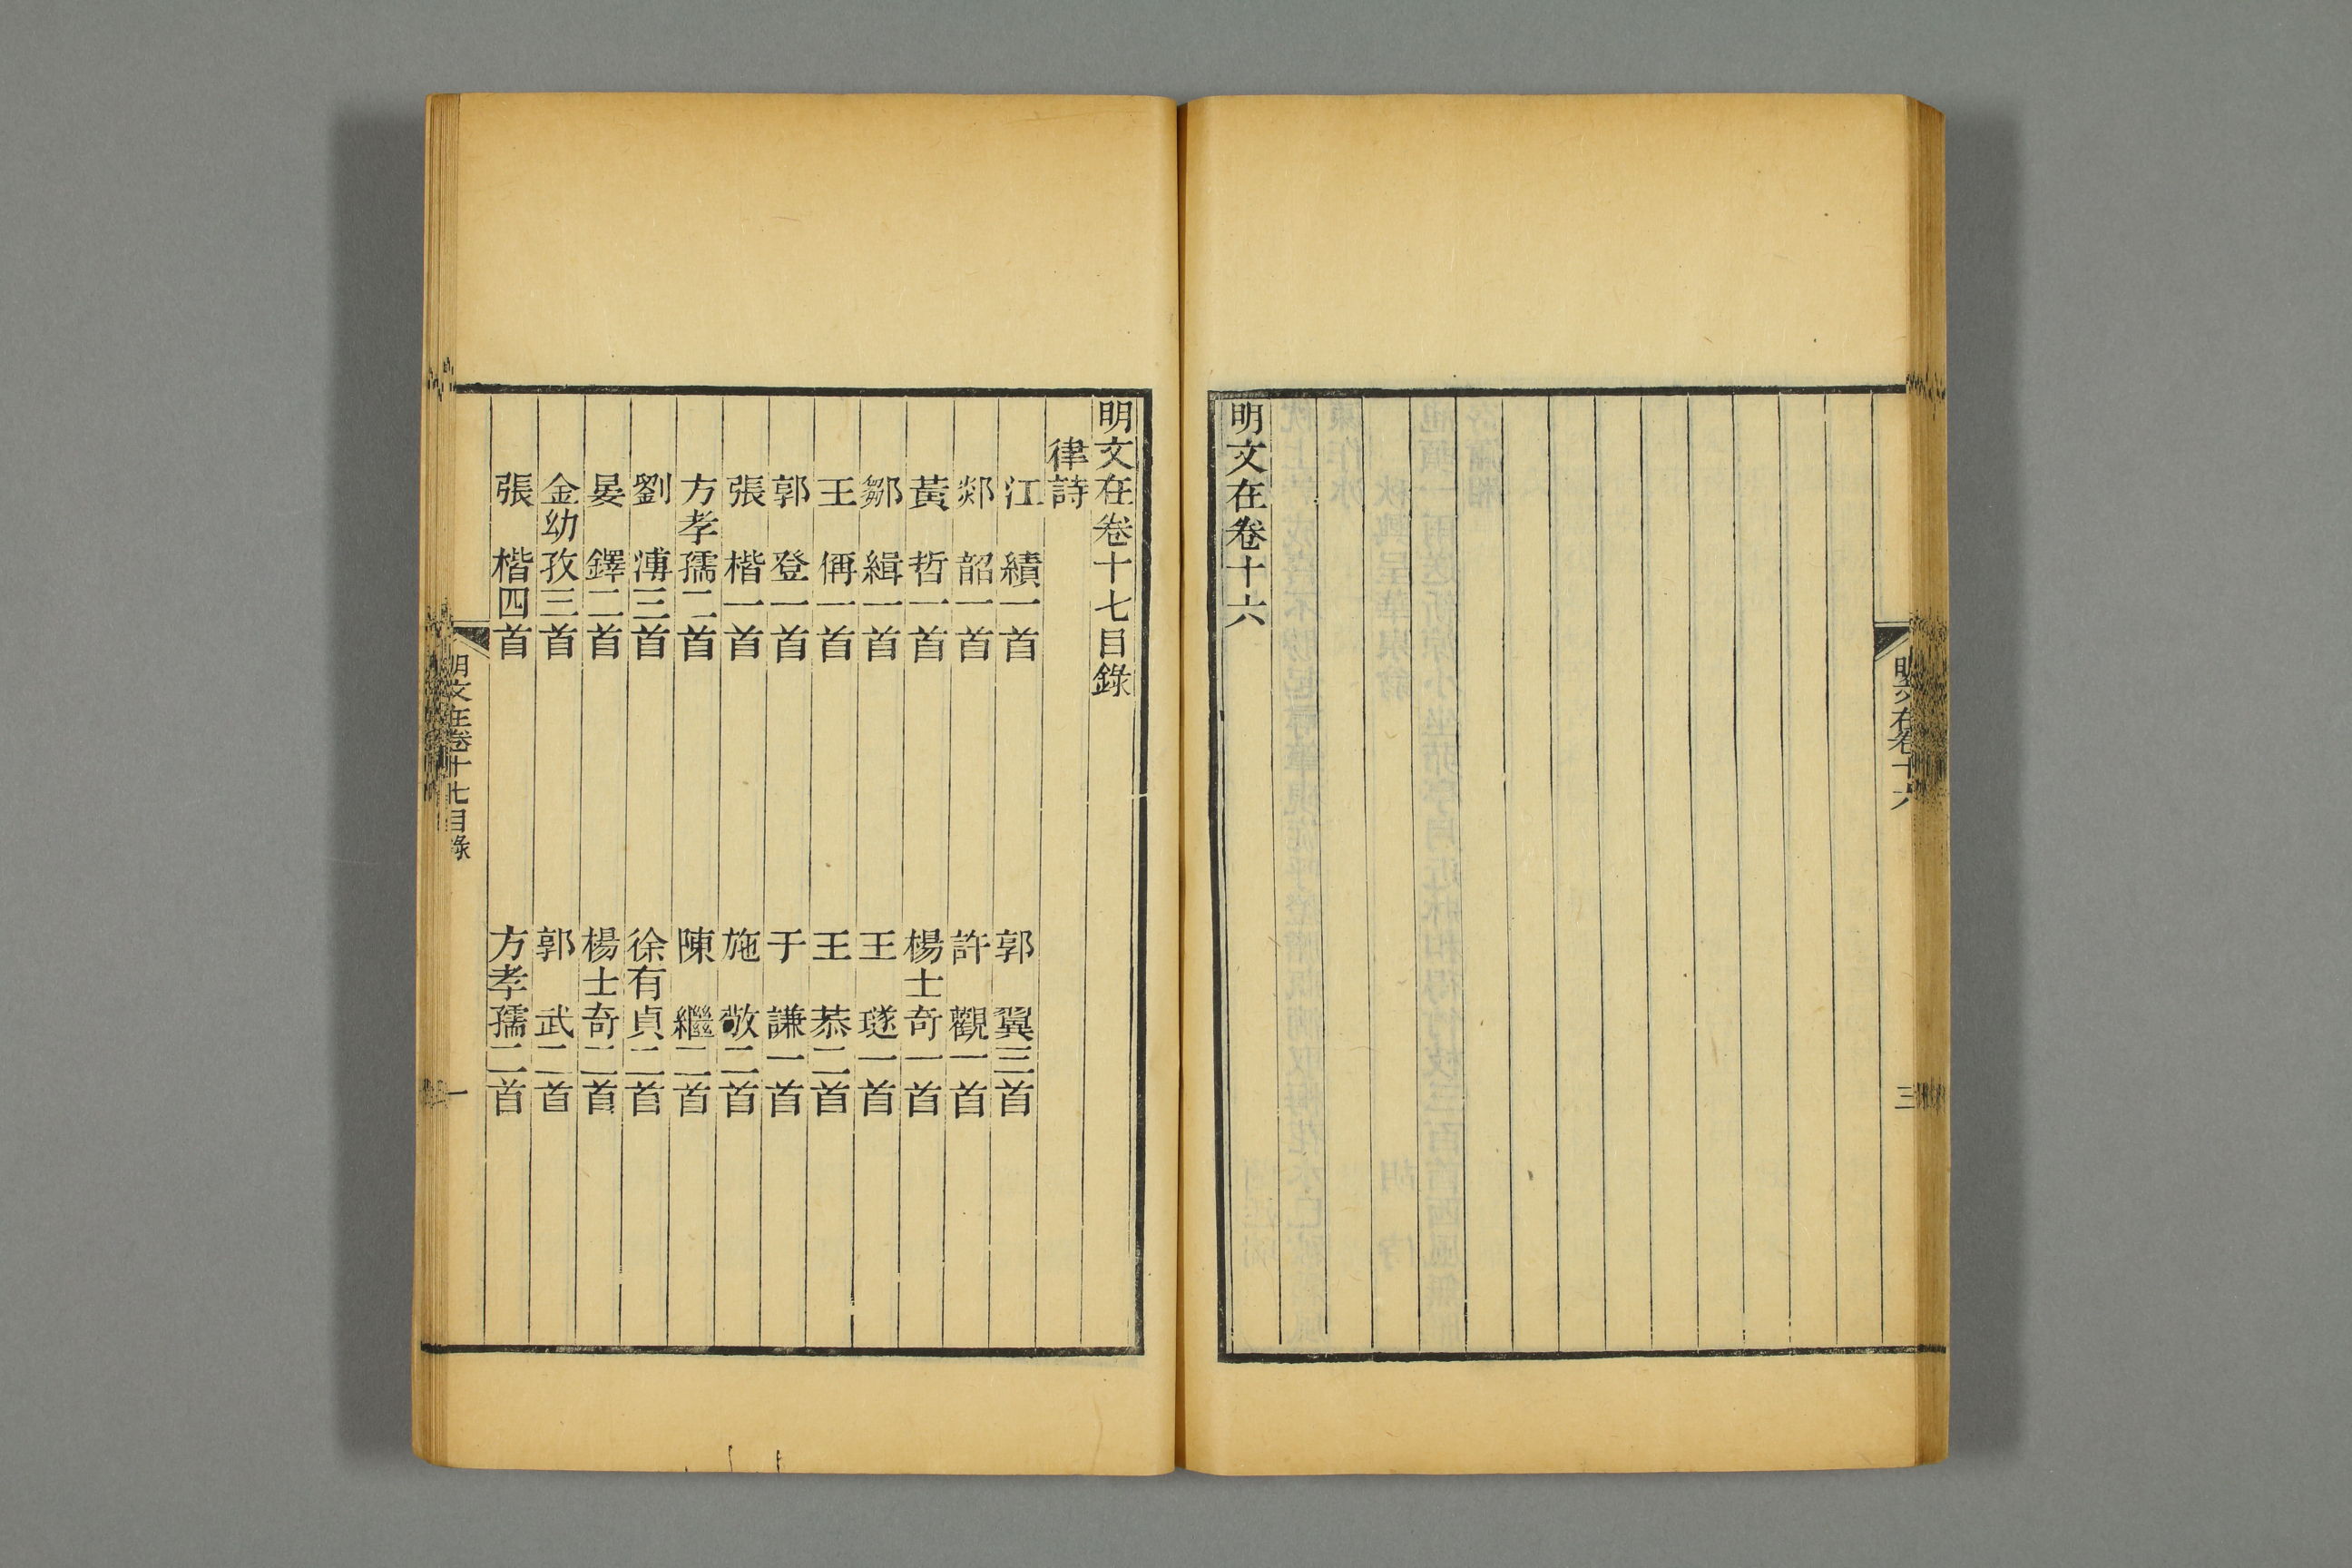 明文在卷十六
三
明文在卷十六
明文在卷十七目錄
律詩
江　績一首　郭　翼三首
郯　韶一首　許　觀一首
黃　哲一首　楊士奇一首
鄒　緝一首　王　璲一首
王　偁一首　王　恭二首
郭　登一首　于　謙一首
張　楷一首　施　敬二首
方孝孺二首　陳　繼二首
劉　溥三首　徐有貞二首
晏　鐸二首　楊士奇二首
金幼孜三首　郭　武二首
張　楷四首　方孝孺二首
明文在卷十七目錄
一